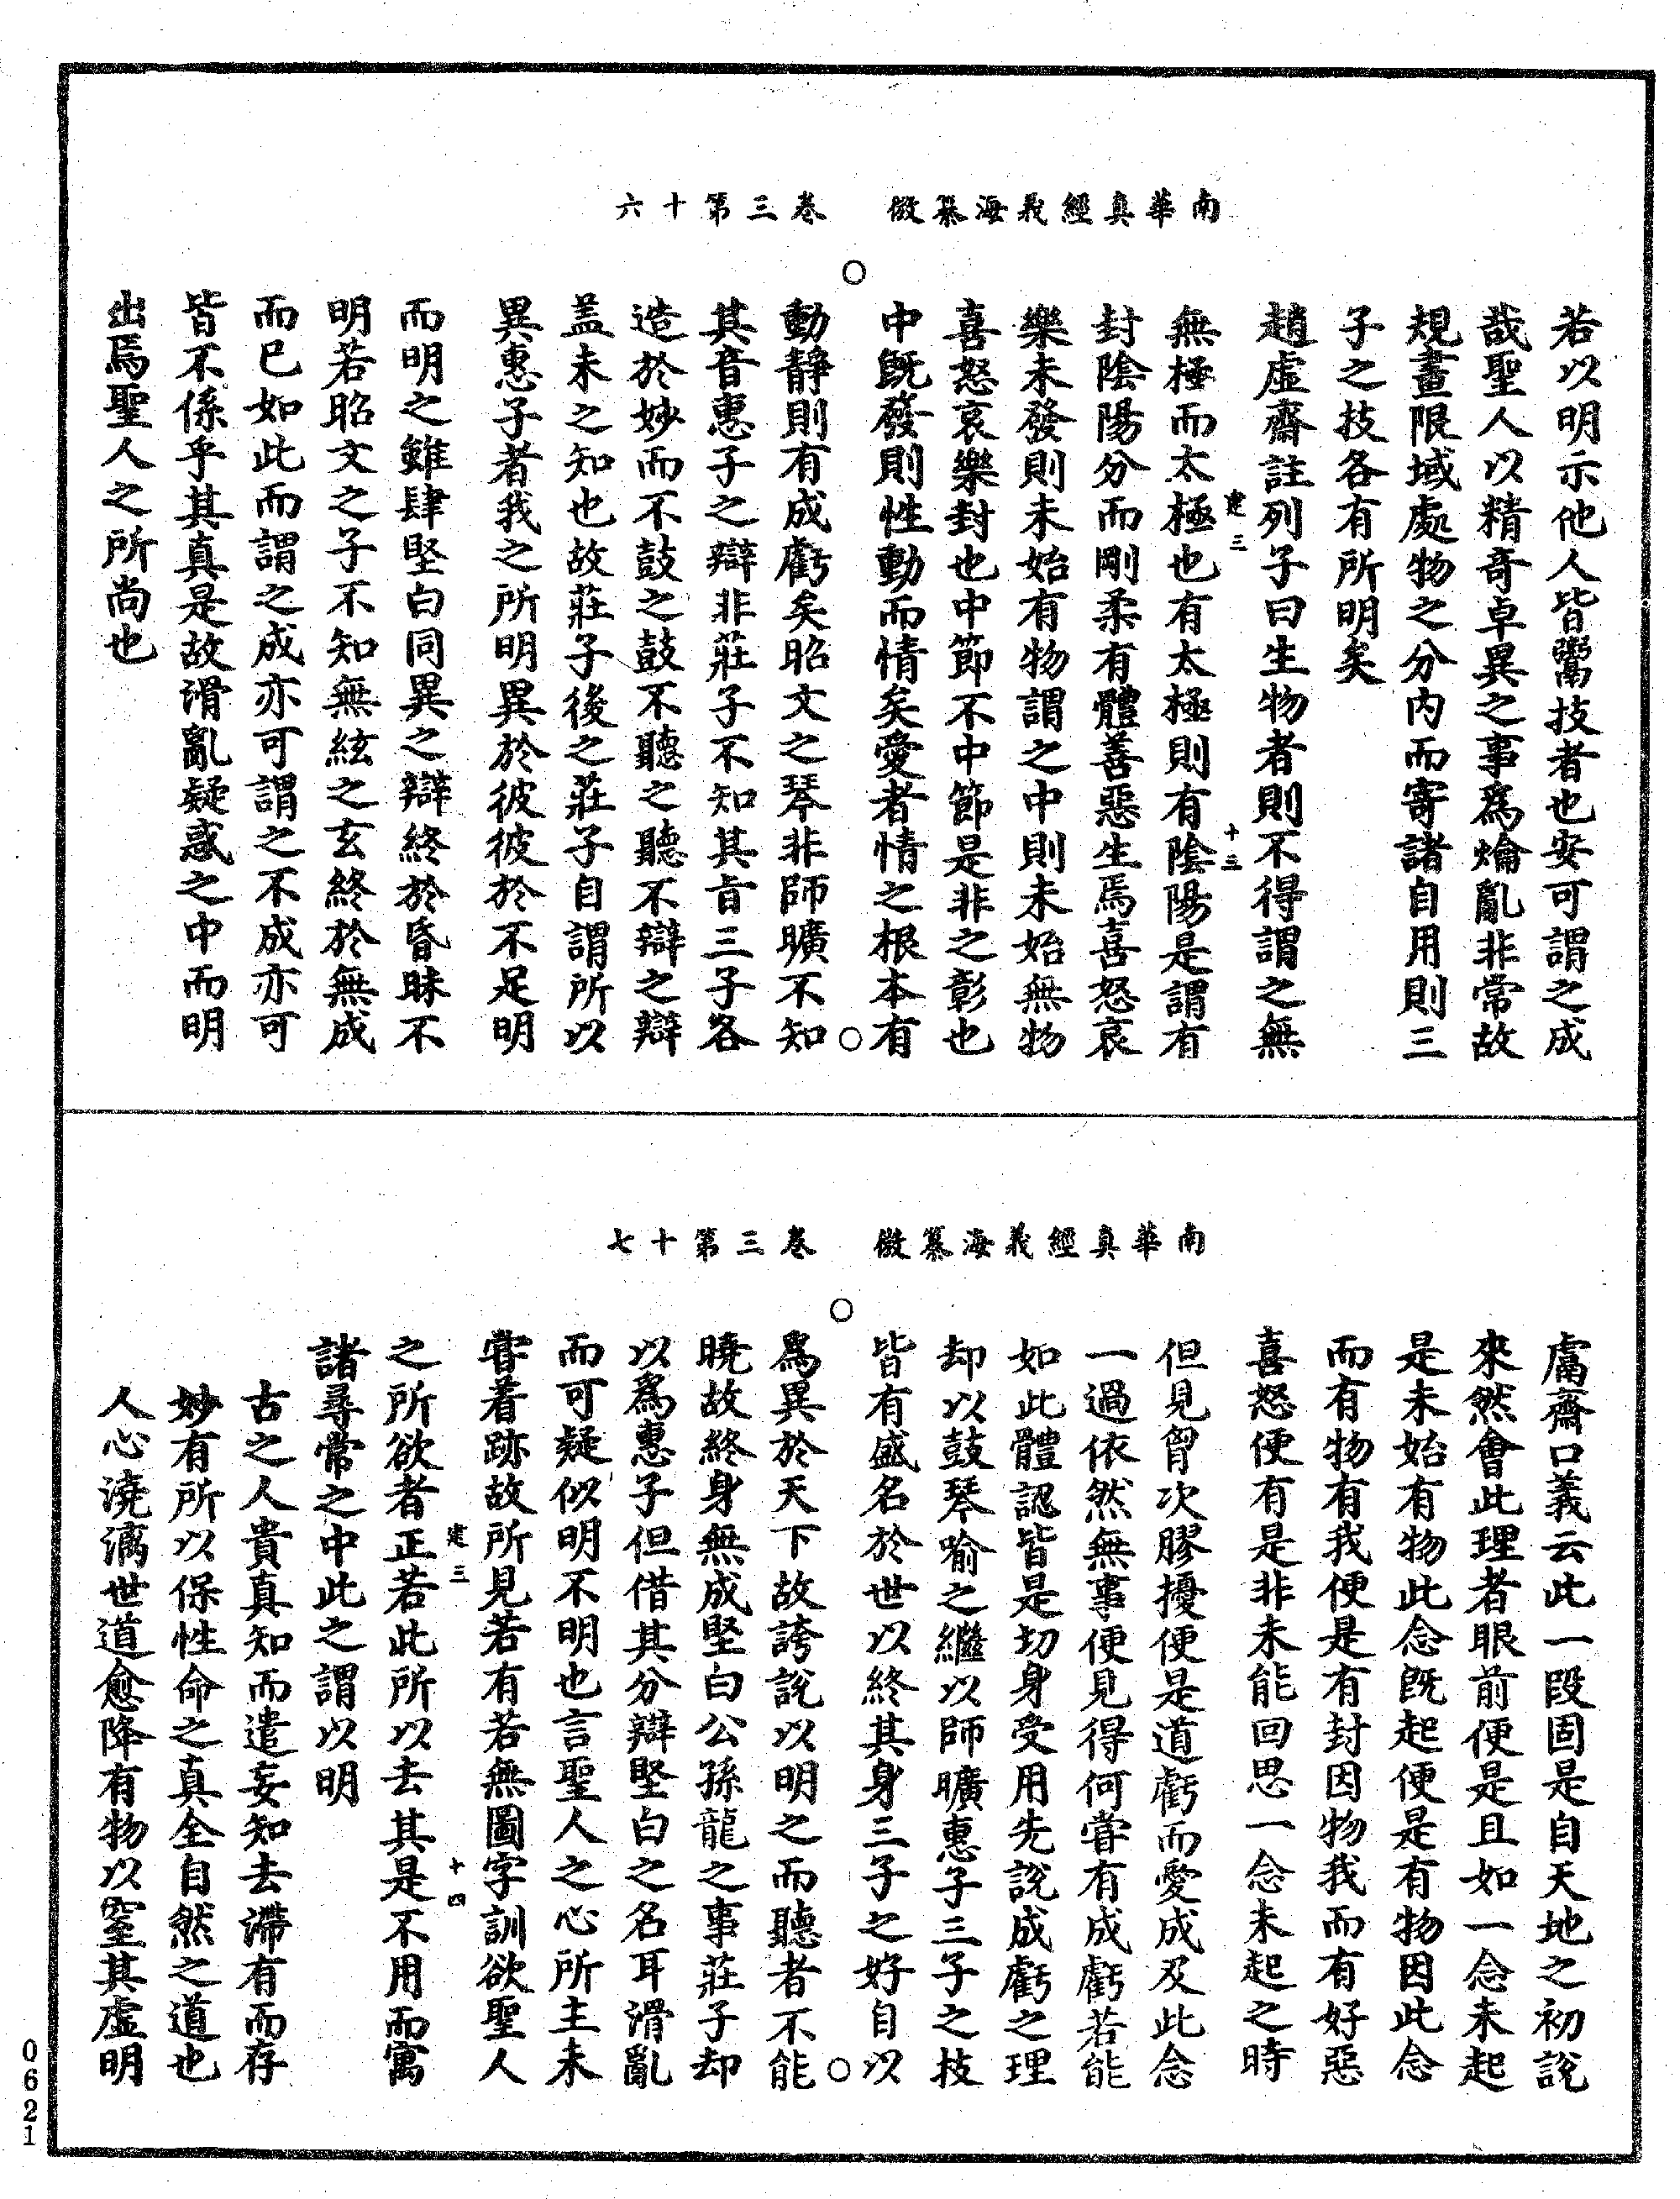 南華真經義海纂微　卷三第十六
若以明示他人皆鬻技者也安可謂之成
哉聖人以精奇卓異之事爲爚亂非常故
規畫限域處物之分内而寄諸自用則三
子之技各有所明矣
趙虛齋註列子曰生物者則不得謂之無
建三　十三
無極而太極也有太極則有陰陽是謂有
封陰陽分而剛柔有體善惡生焉喜怒哀
樂未發則未始有物謂之中則未始無物
喜怒哀樂封也中節不中節是非之彰也
中旣發則性動而情矣愛者情之根本有
動靜則有成虧矣昭文之琴非師曠不知
其音惠子之辯非莊子不知其旨三子各
造於妙而不鼓之鼓不聽之聽不辯之辯
盖未之知也故莊子後之莊子自謂所以
異惠子者我之所明異於彼彼於不足明
而明之雖肆堅白同異之辯終於昏昧不
明若昭文之子不知無絃之玄終於無成
而已如此而謂之成亦可謂之不成亦可
皆不係乎其真是故滑亂疑惑之中而明
出焉聖人之所尚也
南華真經義海纂微　卷三第十七
鬳齋口義云此一段固是自天地之初說
來然會此理者眼前便是且如一念未起
是未始有物此念旣起便是有物因此念
而有物有我便是有封因物我而有好惡
喜怒便有是非未能回思一念未起之時
但見胷次膠擾便是道虧而愛成及此念
一過依然無事便見得何甞有成虧若能
如此體認皆是切身受用先說成虧之理
却以鼓琴喻之繼以師曠惠子三子之技
皆有盛名於世以終其身三子之好自以
爲異於天下故誇說以明之而聽者不能
曉故終身無成堅白公孫龍之事莊子却
以爲惠子但借其分辯堅白之名耳滑亂
而可疑似明不明也言聖人之心所主未
甞着跡故所見若有若無圖字訓欲聖人
建三　十四
之所欲者正若此所以去其是不用而寓
諸尋常之中此之謂以明
古之人貴真知而遣妄知去滯有而存
妙有所以保性命之真全自然之道也
人心澆漓世道愈降有物以窒其虛明
0621